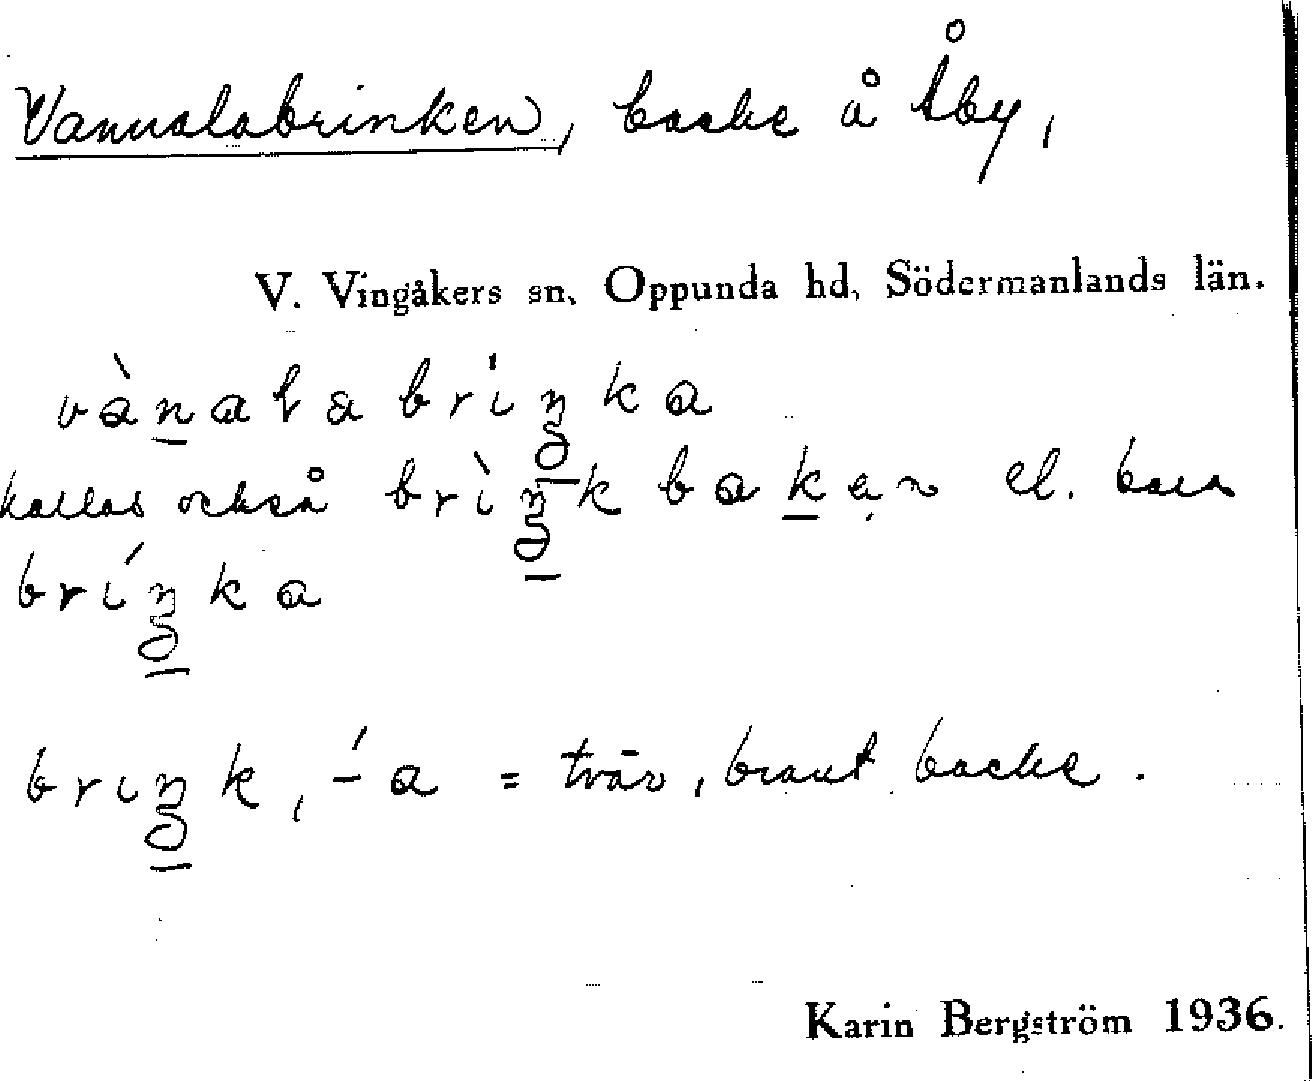 Vannalabrinken, backe å Åby,
V. Vingåkers sn, Oppunda hd, Södermanlands län.
vànalabriŋka
kallas också brìŋkbakən el. bara
bríŋka
briŋk, -́a = tvär, brant backe.
Karin Bergström 1936.